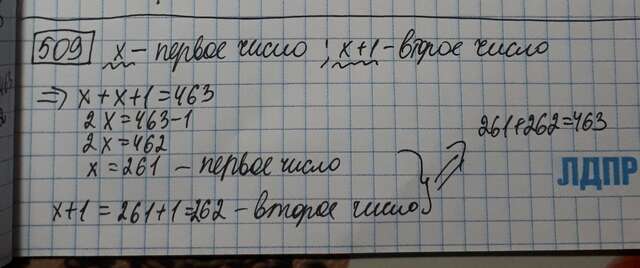 509 x – первое число ; x+1 – второе число
⇒ x + x + 1 = 463
2x = 463-1
2x = 462
261+262=463
x = 261 – первое число
ЛДПР
x+1 = 261+1=262 – второе число